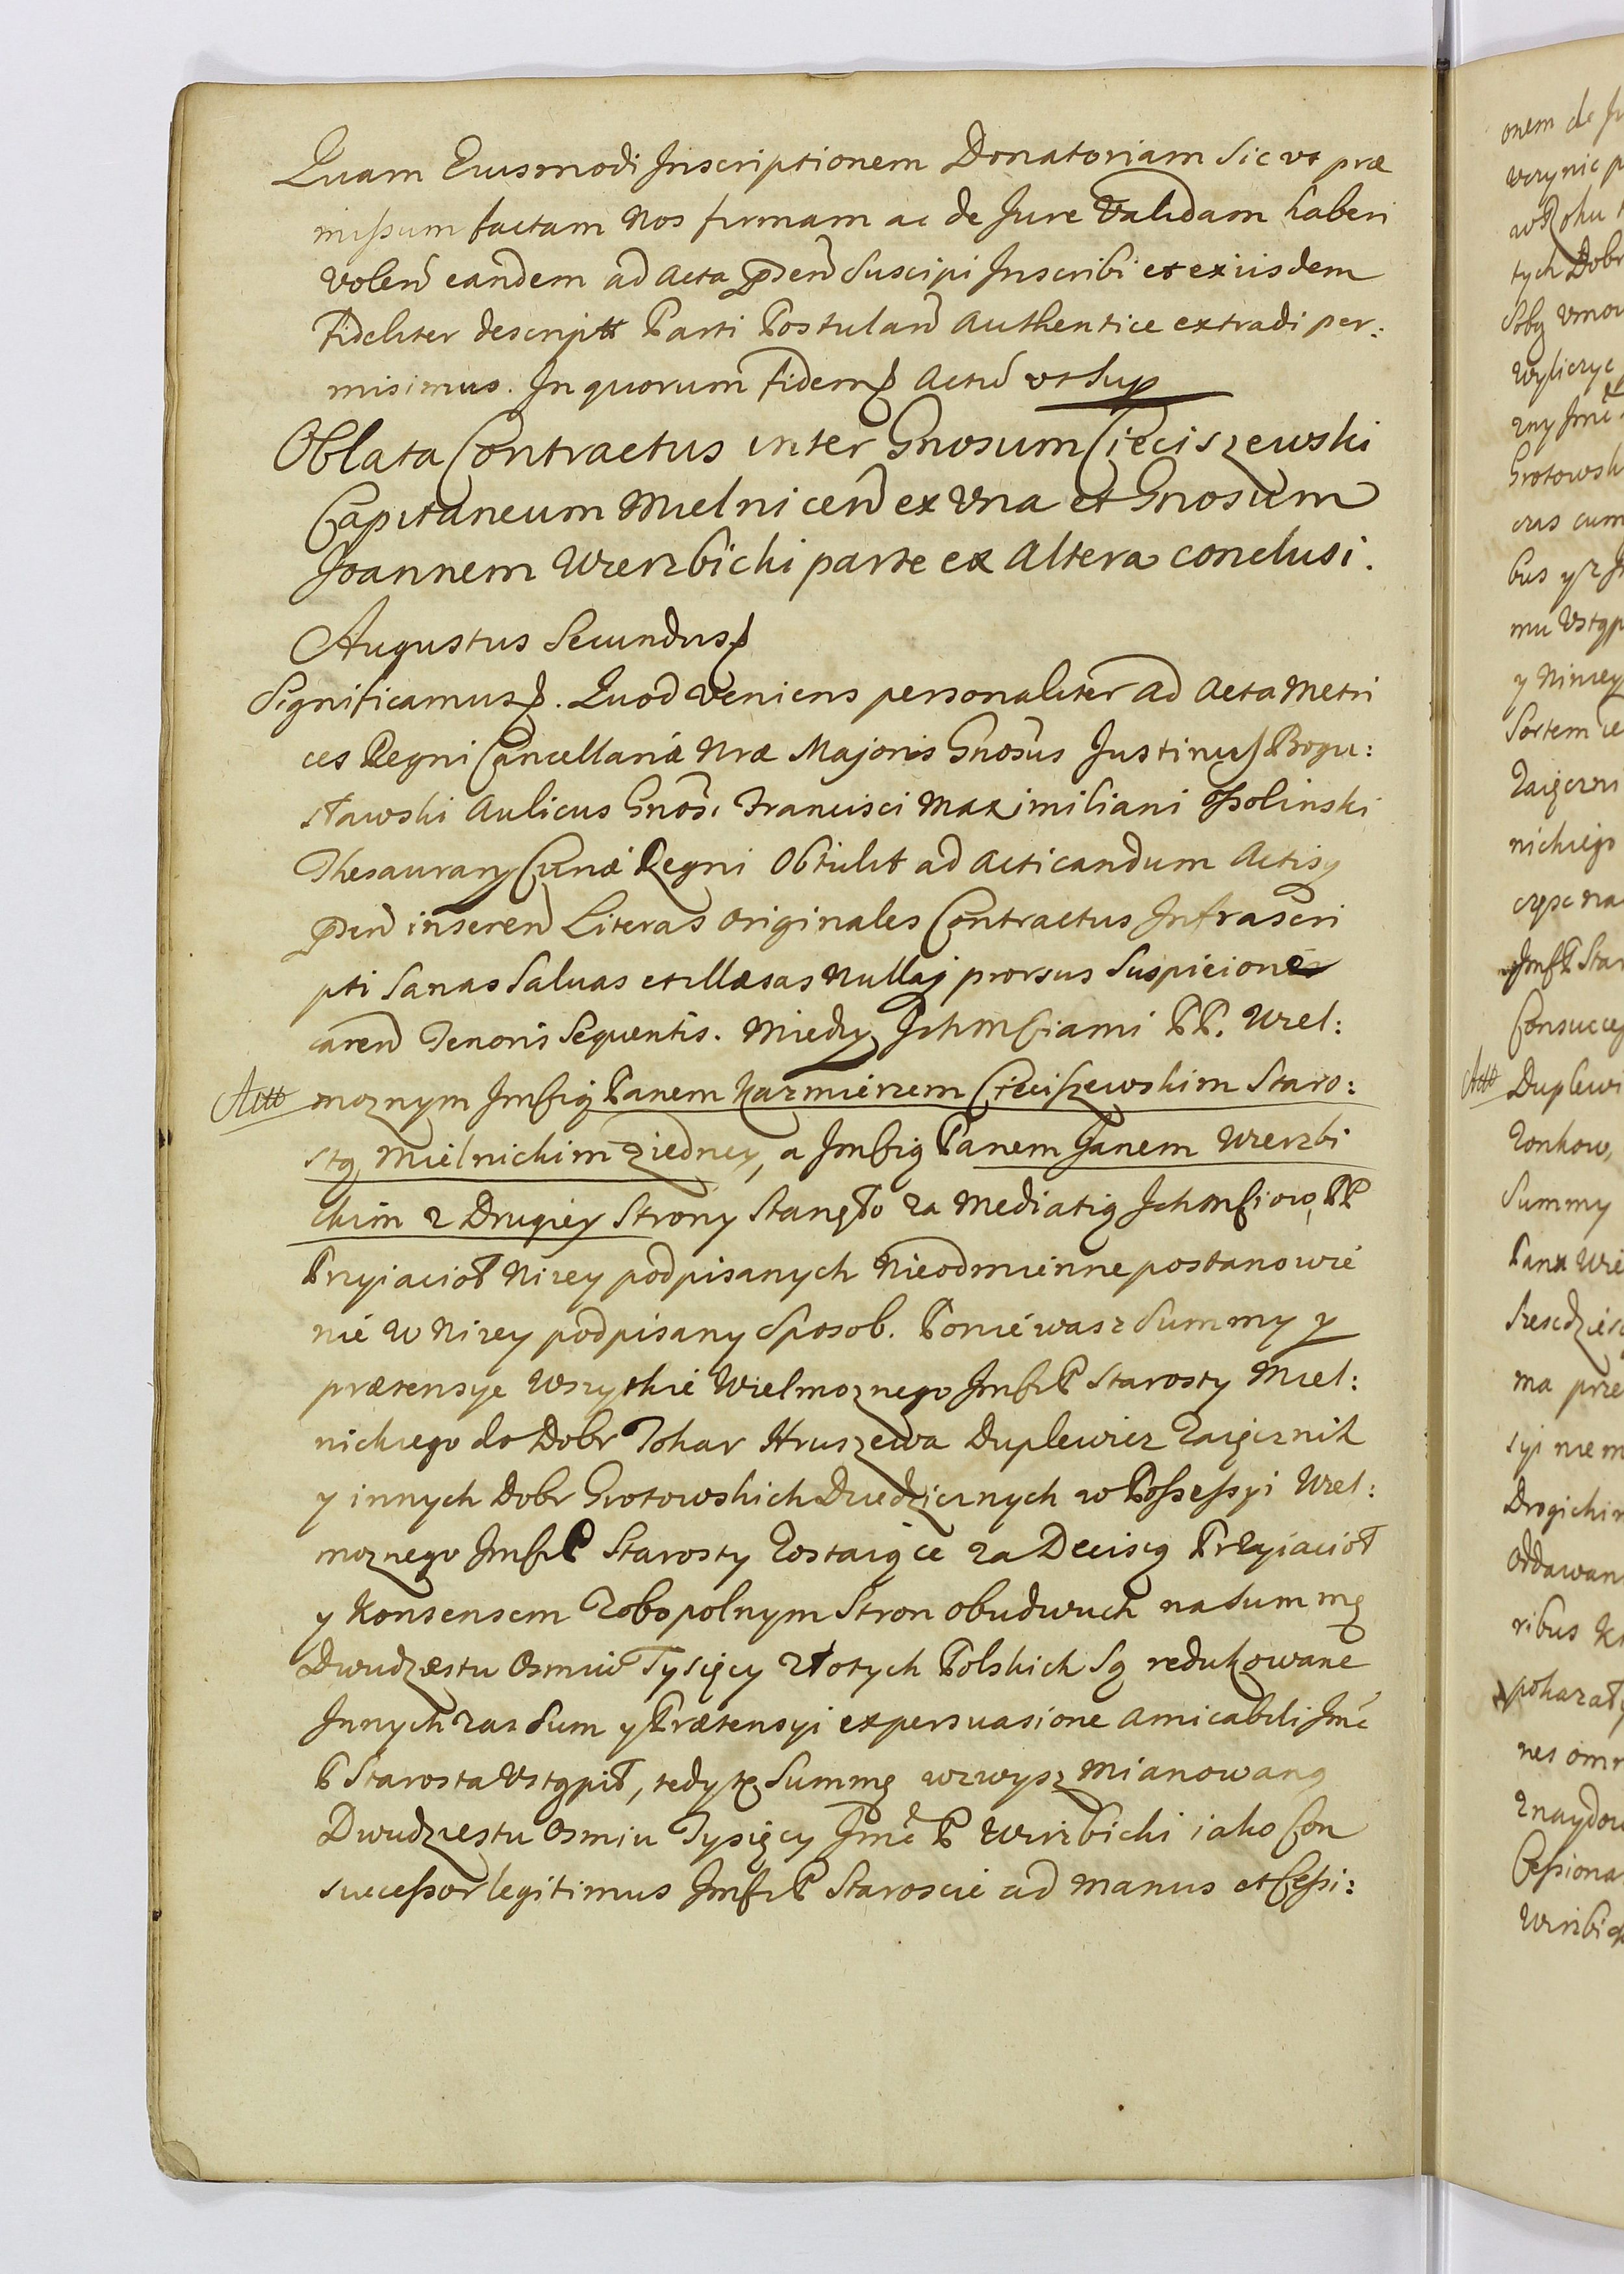 Quam Eiusmodi Inscriptionem Donatoriam Sic vt præ
mißum factam Nos firmam ac de Jure Validam haberi
volen eandem ad Acta Pden Suscipi Inscribi et ex iisdem
fideliter descriptt Parti Postulan Authentice extradi per:
misimus. In quorum fidem Actu vt Sup
Oblata Contractus inter Gnosum Cieciszewski
Capitaneum Mielnicen ex Vna et Gnosum
Joannem Wierzbicki parte ex Altera conclusi.
Augustus Secundus
Significamus. Quod Veniens personaliter ad Acta Metri
ces Regni Cancellariæ Nræ Majoris Gnosus Justinus Bogu:
sławski Aulicus Gnosi Francisci Maximiliani Oßolinski
Thesaurary Curiæ Regni Obtulit ad Acticandum Actisq
Pden inseren Literas Originales Contractus Infrascri
pti Sanas Saluas et illæsas Nullaq prorsus Suspicione
caren Tenoris Sequentis. Miedzy Ichmściami PP. Wiel:
Actt moznym Jmścią Panem Kazmierzem Cieciszewskim Staro:
stą Mielnickim z iedney, a Jmścią Panem Janem Wierzbi
ckim z Drugiey Strony Stanęło za Mediatią Ichmściow PP
Przyiacioł Nizey podpisanych Nieodmienne postanowie
nie w Nizey podpisany Sposob. Poniewasz Summy y
prætensye Wszytkie Wielmoznego Jmści P Starosty Miel:
nickiego do Dobr Tokar Hruszewa Duplewicz Zaięcznik
y innych Dobr Grotowskich Dziedzicznych w Poßeßyi Wiel:
moznego Jmści P Starosty Zostaiące za Decisią Przyiacioł
y Konsensem Zobopolnym Stron obudwuch na Summę
Dwudziestu Osmiu Tysięcy złotych Polskich Są redukowane
Innych zas Sum y Prætensyi ex persuasione Amicabili Jmć
P Starosta Vstąpił, tedy tę Summę wzwysz Mianowaną
Dwudziestu Osmiu Tysięcy Jmć P Wirzbicki iako Con
succeßor legitimus Jmści P Staroscie ad manus et Ceßi:
onem de
tych Dobr
wyliczyc
Grotowsk
cras cum
y Niniey
Sortem
nickiego
Actt Duplewi
Summy
ma prze
Oddawan
ribus
Ceßiona